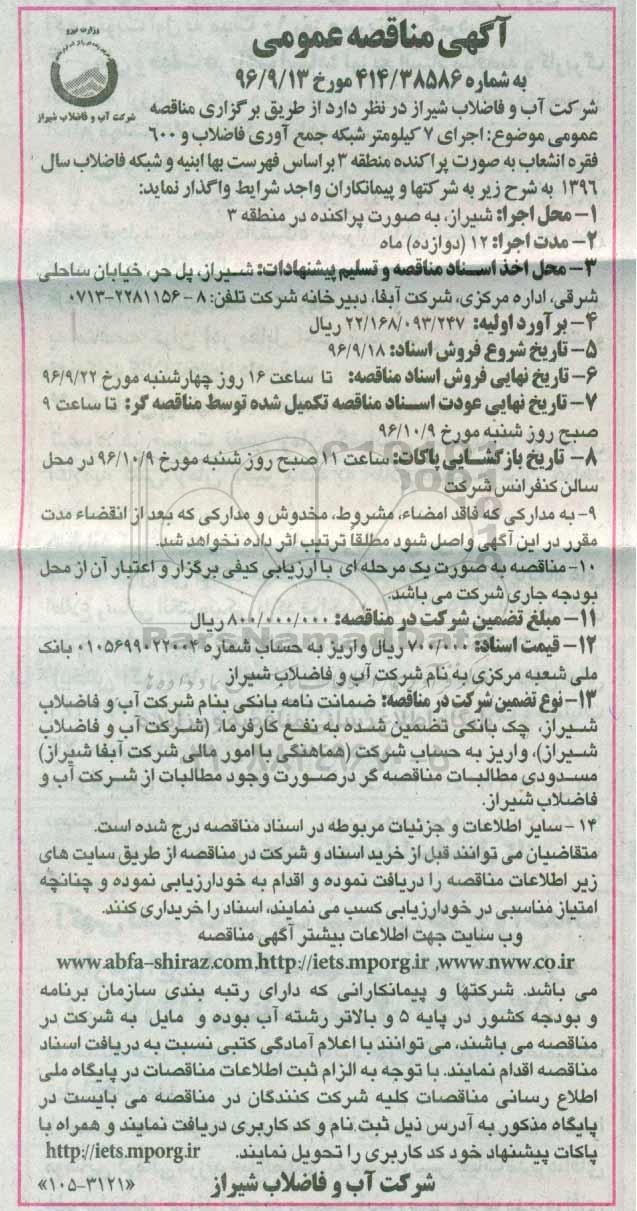 آگهی مناقصه عمومی
وزارت نیرو
شرکت آب و فاضلاب شیراز
به شماره ۴۱۴/۳۸۵۸۶ مورخ ۹۶/۹/۱۳
شرکت آب و فاضلاب شیراز در نظر دارد از طریق برگزاری مناقصه
عمومی موضوع: اجرای ۷ کیلومتر شبکه جمع آوری فاضلاب و ۶۰۰
فقره انشعاب به صورت پراکنده منطقه ۳ بر اساس فهرست بها ابنیه و شبکه فاضلاب سال
۱۳۹۶ به شرح زیر به شرکتها و پیمانکاران واجد شرایط واگذار نماید:
۱- محل اجرا: شیراز، به صورت پراکنده در منطقه ۳
۲- مدت اجرا: ۱۲ (دوازده) ماه
۳- محل اخذ اسناد مناقصه و تسلیم پیشنهادات: شیراز، پل حر، خیابان ساحلی
شرقی، اداره مرکزی، شرکت آبفا، دبیرخانه شرکت تلفن: ۸-۰۷۱۳-۲۲۸۱۱۵۶
۴- برآورد اولیه: ۲۲/۱۶۸/۰۹۳/۲۴۷ ریال
۵- تاریخ شروع فروش اسناد: ۹۶/۹/۱۸
۶- تاریخ نهایی فروش اسناد مناقصه: تا ساعت ۱۶ روز چهارشنبه مورخ ۹۶/۹/۲۲
۷- تاریخ نهایی عودت اسناد مناقصه تکمیل شده توسط مناقصه گر: تا ساعت ۹
صبح روز شنبه مورخ ۹۶/۱۰/۹
۸- تاریخ بازگشایی پاکات: ساعت ۱۱ صبح روز شنبه مورخ ۹۶/۱۰/۹ در محل
سالن کنفرانس شرکت
۹- به مدارکی که فاقد امضاء، مشروط، مخدوش و مدارکی که بعد از انقضاء مدت
مقرر در این آگهی واصل شود مطلقاً ترتیب اثر داده نخواهد شد.
۱۰- مناقصه به صورت یک مرحله ای با ارزیابی کیفی برگزار و اعتبار آن از محل
بودجه جاری شرکت می باشد.
۱۱- مبلغ تضمین شرکت در مناقصه: ۸۰۰/۰۰۰/۰۰۰ ریال
ParsNamadData
۱۲- قیمت اسناد: ۷۰۰/۰۰۰ ریال واریز به حساب شماره ۰۱۰۵۶۹۹۰۲۲۰۰۴ بانک
ملی شعبه مرکزی به نام شرکت آب و فاضلاب شیراز
۱۳- نوع تضمین شرکت در مناقصه: ضمانت نامه بانکی بنام شرکت آب و فاضلاب
شیراز، چک بانکی تضمین شده به نفع کارفرما، (شرکت آب و فاضلاب
شیراز)، واریز به حساب شرکت (هماهنگی با امور مالی شرکت آبفا شیراز)
مسدودی مطالبات مناقصه گر درصورت وجود مطالبات از شرکت آب و
فاضلاب شیراز.
۱۴- سایر اطلاعات و جزئیات مربوطه در اسناد مناقصه درج شده است.
متقاضیان می توانند قبل از خرید اسناد و شرکت در مناقصه از طریق سایت های
زیر اطلاعات مناقصه را دریافت نموده و اقدام به خودارزیابی نموده و چنانچه
امتیاز مناسبی در خودارزیابی کسب می نمایند، اسناد را خریداری کنند.
وب سایت جهت اطلاعات بیشتر آگهی مناقصه
www.abfa-shiraz.com,http://iets.mporg.ir ,www.nww.co.ir
می باشد. شرکتها و پیمانکارانی که دارای رتبه بندی سازمان برنامه
و بودجه کشور در پایه ۵ و بالاتر رشته آب بوده و مایل به شرکت در
مناقصه می باشند، می توانند با اعلام آمادگی کتبی نسبت به دریافت اسناد
مناقصه اقدام نمایند. با توجه به الزام ثبت اطلاعات مناقصات در پایگاه ملی
اطلاع رسانی مناقصات کلیه شرکت کنندگان در مناقصه می بایست در
پایگاه مذکور به آدرس ذیل ثبت نام و کد کاربری دریافت نمایند و همراه با
پاکات پیشنهاد خود کد کاربری را تحویل نمایند. http://iets.mporg.ir
شرکت آب و فاضلاب شیراز «۱۰۵-۳۱۲۱»